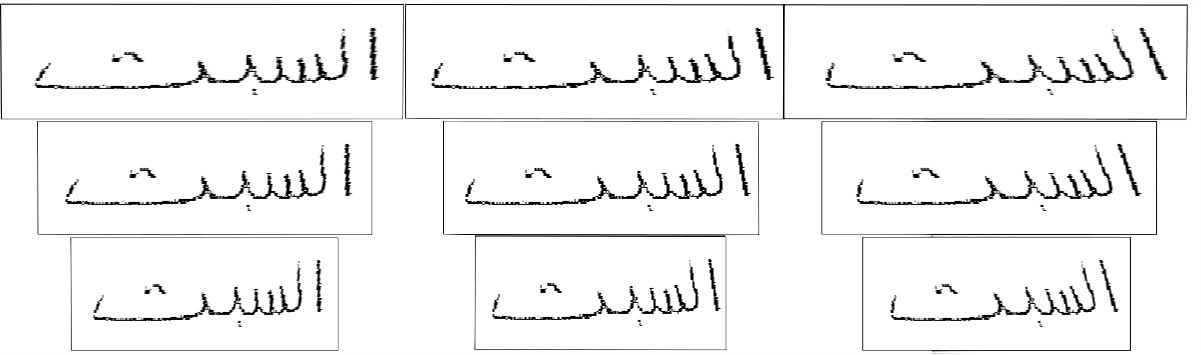 السبت السبت السبت
السبت السبت السبت
السبت السبت السبت